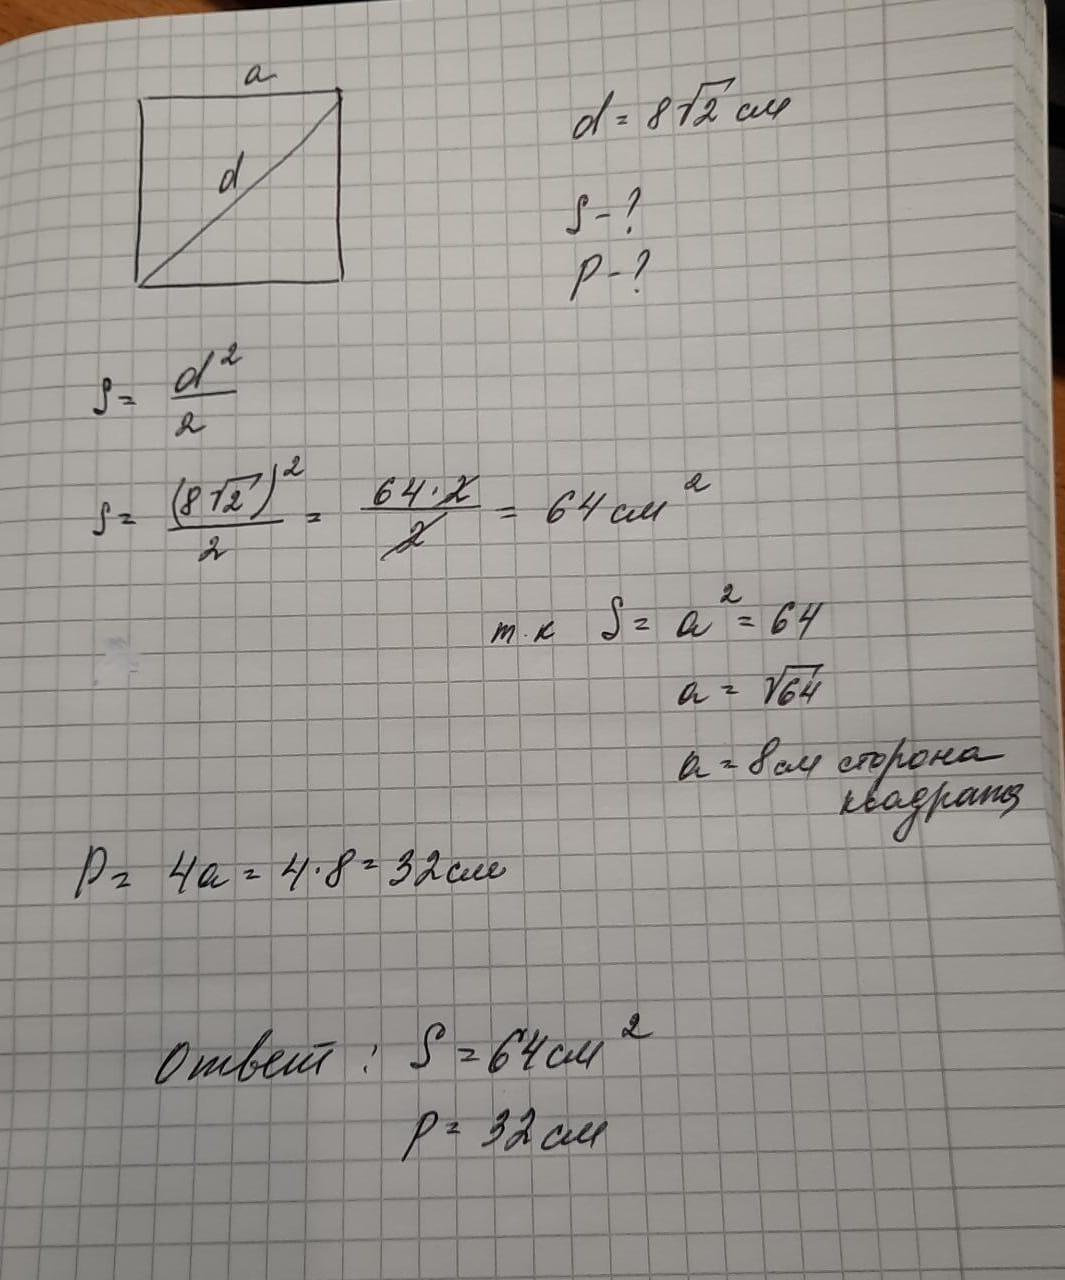 a
d
d = 8√2 см
S - ?
P - ?
S = d²/2
S = (8√2)²/2 = 64·2/2 = 64 см²
т.к S = a² = 64
a = √64
a = 8 см сторона
квадрата
P = 4a = 4·8 = 32 см
Ответ: S = 64 см²
P = 32 см